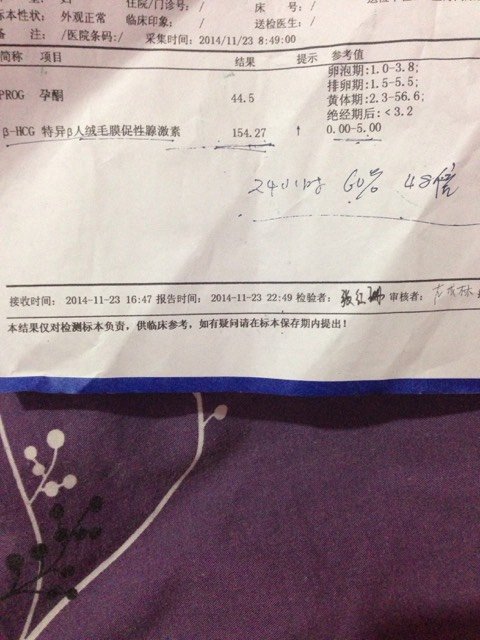 住院/门诊号: / 床 号: /
标本性状: 外观正常 临床印象: / 送检医生: /
备 注: /医院条码:/ 采集时间: 2014/11/23 8:49:00
简称 项目 结果 提示 参考值
卵泡期:1.0-3.8;
PROG 孕酮 44.5 排卵期:1.5-5.5;
黄体期:2.3-56.6;
绝经期后:<3.2
β-HCG 特异β人绒毛膜促性腺激素 154.27 ↑ 0.00-5.00
24小时 60% 48倍
接收时间: 2014-11-23 16:47 报告时间: 2014-11-23 22:49 检验者: 审核者:
本结果仅对检测标本负责，供临床参考，如有疑问请在标本保存期内提出！